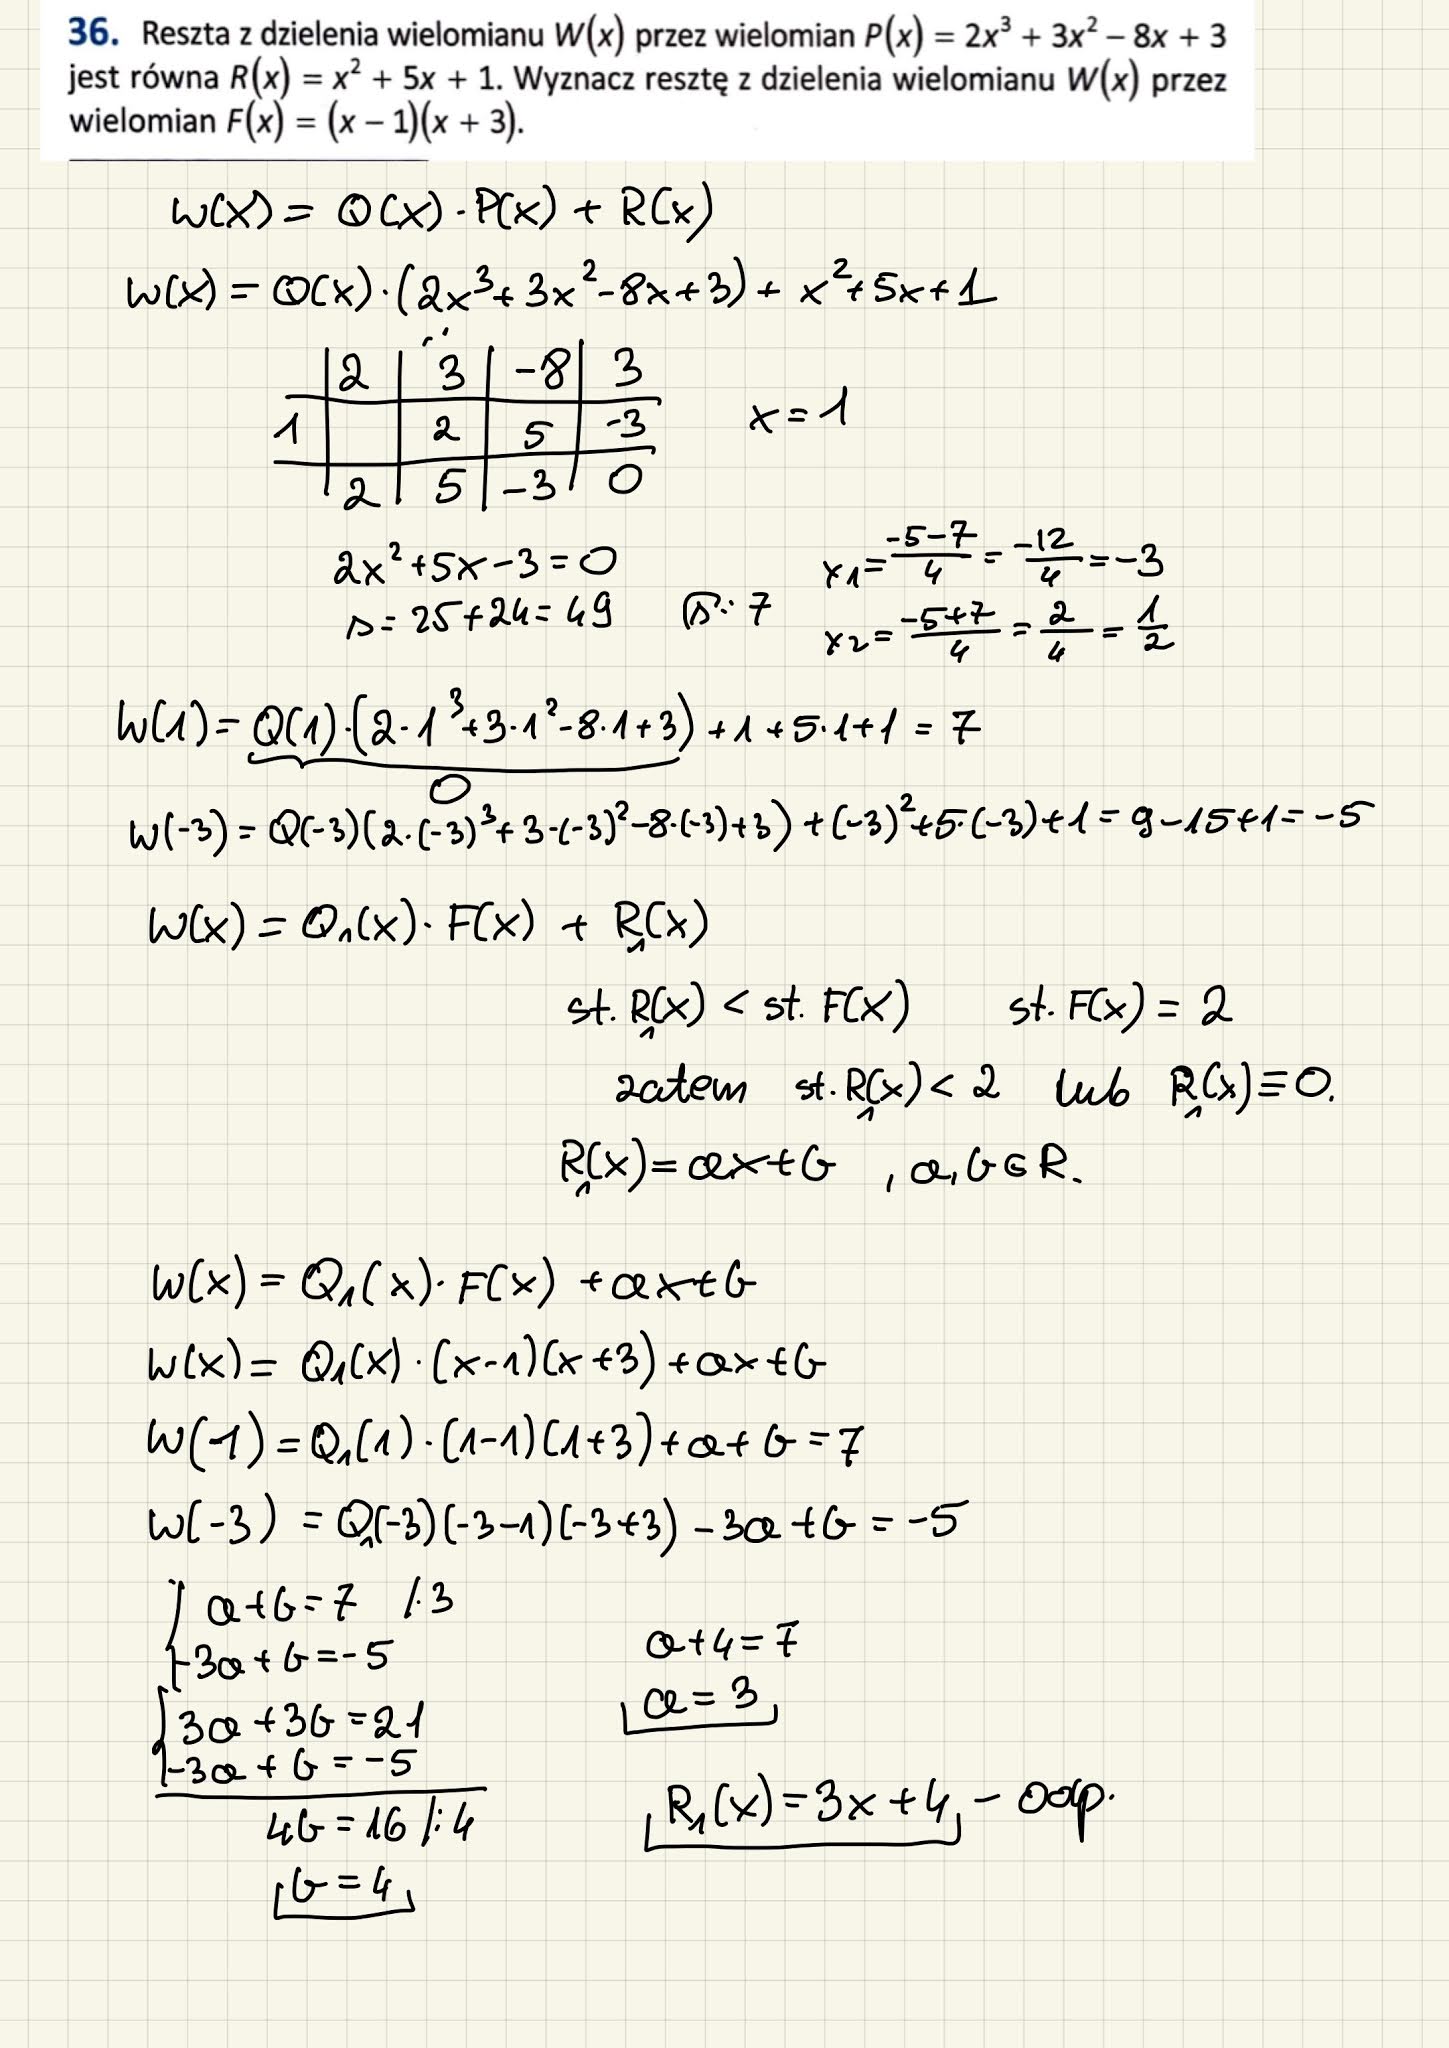 36. Reszta z dzielenia wielomianu W(x) przez wielomian P(x) = 2x³ + 3x² – 8x + 3
jest równa R(x) = x² + 5x + 1. Wyznacz resztę z dzielenia wielomianu W(x) przez
wielomian F(x) = (x – 1)(x + 3).
W(x) = Q(x) · P(x) + R(x)
W(x) = Q(x) · (2x³ + 3x² - 8x + 3) + x² + 5x + 1
2 | 3 | -8 | 3
1 | | 2 | 5 | -3 x = 1
2 | 5 | -3 | 0
2x² + 5x - 3 = 0 x1 = \frac{-5-7}{4} = \frac{-12}{4} = -3
Δ = 25 + 24 = 49 √Δ = 7 x2 = \frac{-5+7}{4} = \frac{2}{4} = \frac{1}{2}
W(1) = Q(1) · (2 · 1³ + 3 · 1² - 8 · 1 + 3) + 1 + 5 · 1 + 1 = 7
0
W(-3) = Q(-3)(2 · (-3)³ + 3 · (-3)² - 8 · (-3) + 3) + (-3)² + 5 · (-3) + 1 = 9 - 15 + 1 = -5
W(x) = Q₁(x) · F(x) + R₁(x)
st. R₁(x) < st. F(x) st. F(x) = 2
zatem st. R₁(x) < 2 lub R₁(x) ≡ 0.
R₁(x) = ax + b , a, b ∈ R.
W(x) = Q₁(x) · F(x) + ax + b
W(x) = Q₁(x) · (x-1)(x+3) + ax + b
W(1) = Q₁(1) · (1-1)(1+3) + a + b = 7
W(-3) = Q₁(-3)(-3-1)(-3+3) - 3a + b = -5
a + b = 7 /·3
-3a + b = -5
3a + 3b = 21
-3a + b = -5
4b = 16 /:4
b = 4
a + 4 = 7
a = 3
R₁(x) = 3x + 4 - odp.